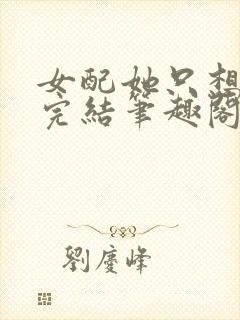 女配她只想
完結筆趣閣
劉慶峰